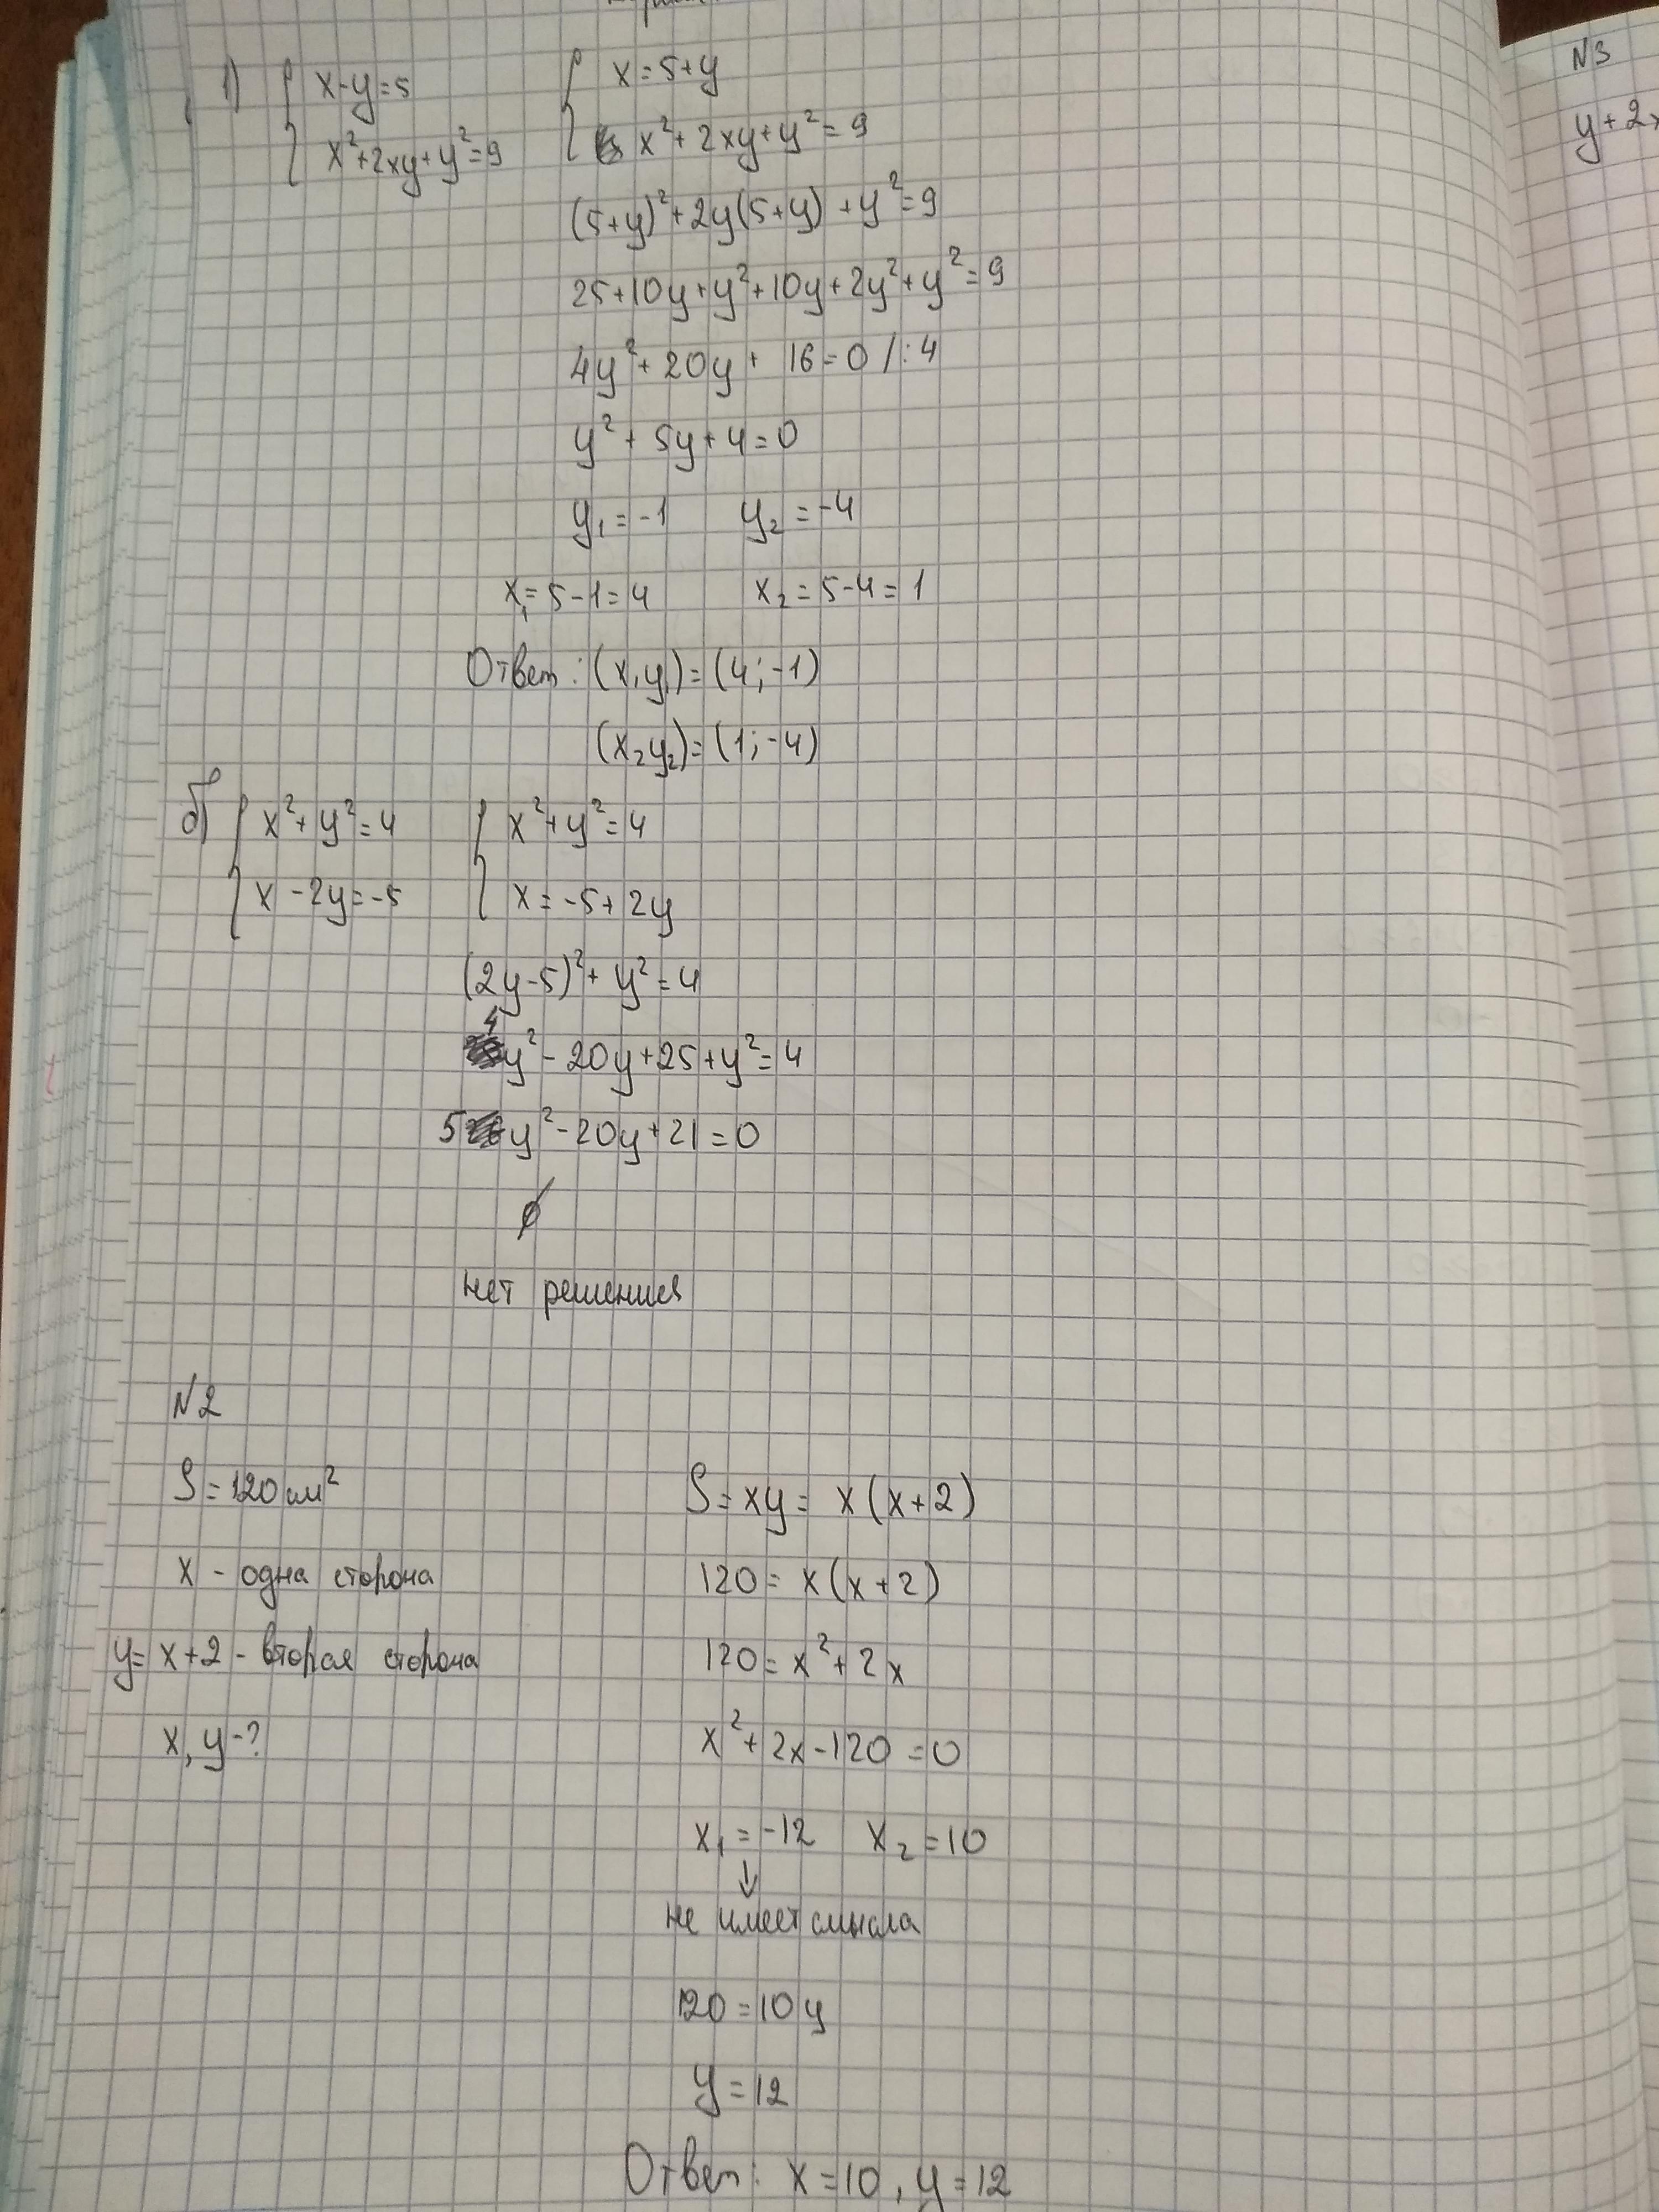 1) { x-y=5 { x=5+y
x²+2xy+y²=9 x²+2xy+y²=9
(5+y)²+2y(5+y)+y²=9
25+10y+y²+10y+2y²+y²=9
4y²+20y+16=0 /:4
y²+5y+4=0
y₁=-1 y₂=-4
x₁=5-1=4 x₂=5-4=1
Ответ: (x₁y₁)=(4;-1)
(x₂y₂)=(1;-4)
б) { x²+y²=4 { x²+y²=4
x-2y=-5 x=-5+2y
(2y-5)²+y²=4
4y²-20y+25+y²=4
5y²-20y+21=0
∅
нет решения
N2
S=120см² S=xy=x(x+2)
x - одна сторона 120=x(x+2)
y=x+2 - вторая сторона 120=x²+2x
x,y-? x²+2x-120=0
x₁=-12 x₂=10
↓
не имеет смысла
120=10y
y=12
Ответ: x=10, y=12
N3
y+2x